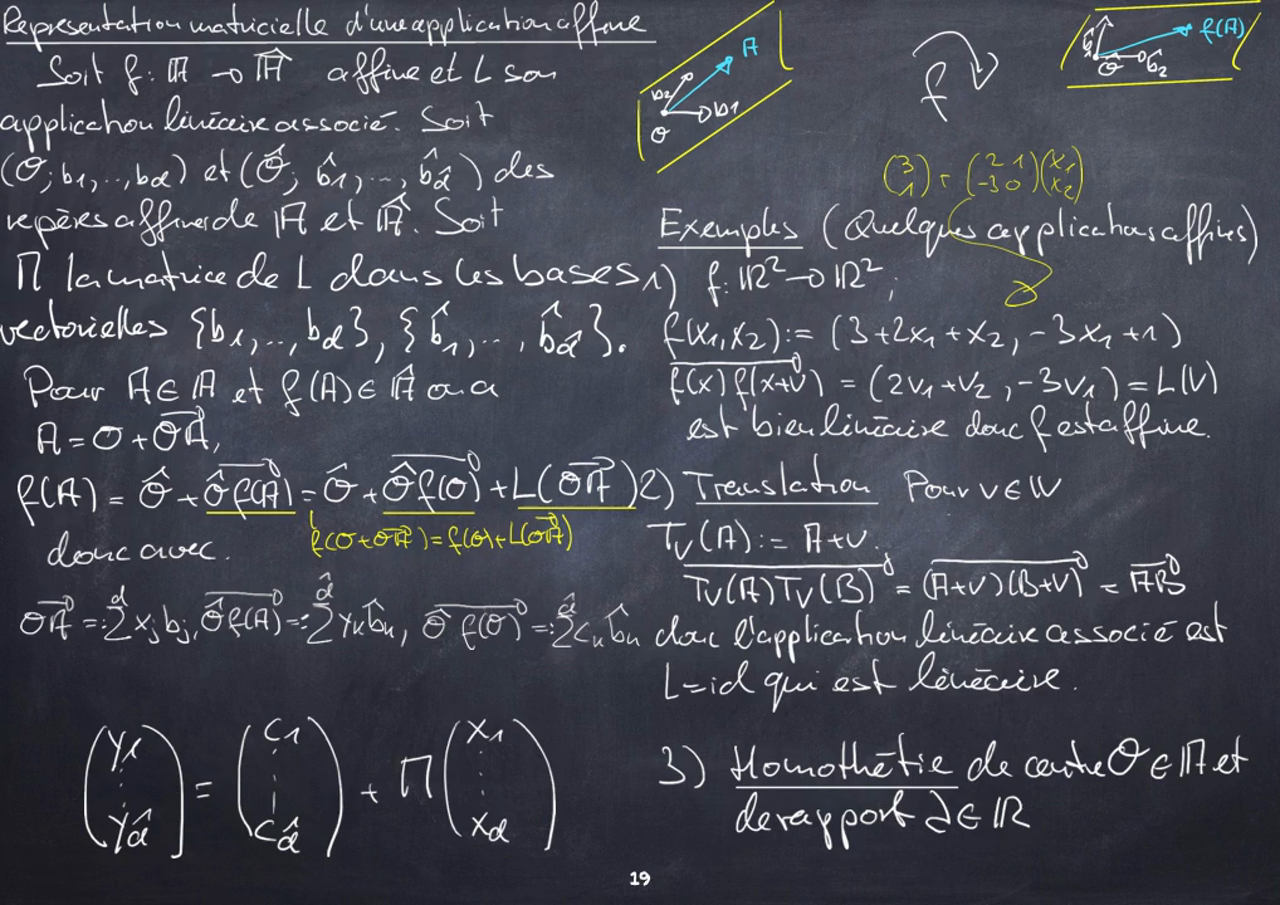 Representation matricielle d'une application affine
Soit f: 𝔸 → 𝔸̂ affine et L son
application linéaire associé. Soit
(O; b1,..,bd) et (Ô; b̂1,..., b̂d̂) des
repères affines de 𝔸 et 𝔸̂. Soit
M la matrice de L dans les bases
vectorielles {b1,..,bd}, {b̂1,.., b̂d̂}.
Pour A ∈ 𝔸 et f(A) ∈ 𝔸̂ on a
A = O + OA⃗,
f(A) = Ô + Ôf(A)⃗ = Ô + Ôf(O)⃗ + L(OA⃗)
f(O+OA⃗) = f(O)+L(OA⃗)
donc avec.
OA⃗ =: Σ^d xj bj, Ôf(A)⃗ =: Σ^d̂ yk b̂k, Ôf(O)⃗ =: Σ^d̂ ck b̂k
(y1 ⋮ yd̂) = (c1 ⋮ cd̂) + M (x1 ⋮ xd)
A
b2
b1
O
f
f(A)
b̂1
Ô
b̂2
(3 1) + (2 1 -3 0)(x1 x2)
Exemples (Quelques applications affines)
1) f: ℝ² → ℝ²;
f(x1,x2) := (3+2x1+x2, -3x1+1)
f(x)f(x+v)⃗ = (2v1+v2, -3v1) = L(v)
est bien linéaire donc f est affine.
2) Translation Pour v ∈ 𝕍
Tv(A) := A+v.
Tv(A)Tv(B)⃗ = (A+v)(B+v)⃗ = AB⃗
donc l'application linéaire associé est
L=id qui est linéaire.
3) Homothétie de centre O ∈ 𝔸 et
de rapport λ ∈ ℝ
19